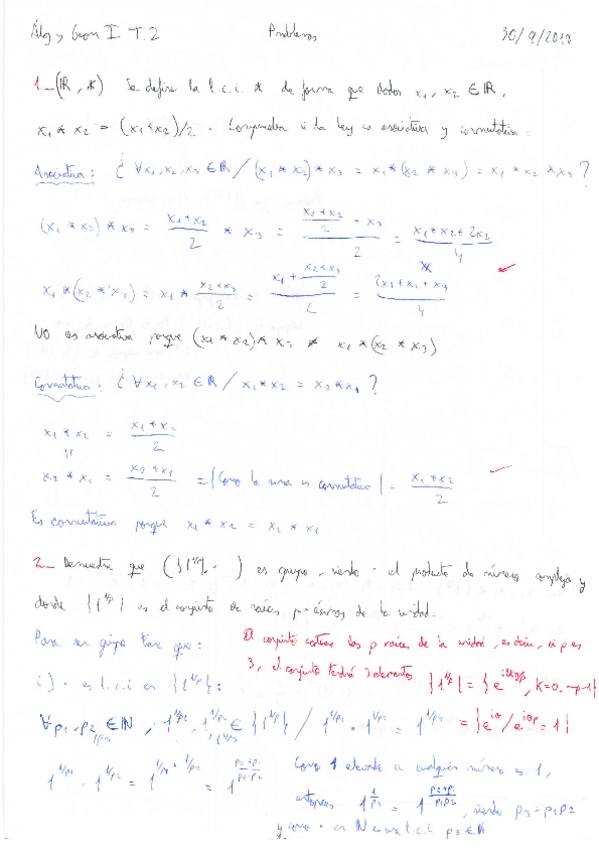 Alg y Geom I T.2 Problemas 30/9/2018
1_ (ℝ, *) Se define la l.c.i. * de forma que dados x₁, x₂ ∈ ℝ,
x₁ * x₂ = (x₁+x₂)/2. Comprueba si la ley es asociativa y conmutativa.
Asociativa: ¿ ∀x₁, x₂, x₃ ∈ ℝ / (x₁ * x₂) * x₃ = x₁ * (x₂ * x₃) = x₁ * x₂ * x₃ ?
(x₁ * x₂) * x₃ = (x₁+x₂)/2 * x₃ = ((x₁+x₂)/2 + x₃)/2 = (x₁+x₂+2x₃)/4
x₁ * (x₂ * x₃) = x₁ * (x₂+x₃)/2 = (x₁ + (x₂+x₃)/2)/2 = (2x₁+x₂+x₃)/4
NO es asociativa porque (x₁ * x₂) * x₃ ≠ x₁ * (x₂ * x₃)
Conmutativa: ¿ ∀x₁, x₂ ∈ ℝ / x₁ * x₂ = x₂ * x₁ ?
x₁ * x₂ = (x₁+x₂)/2
x₂ * x₁ = (x₂+x₁)/2 = |Como la suma es conmutativa| = (x₁+x₂)/2
Es conmutativa porque x₁ * x₂ = x₂ * x₁
2_ Demuestra que ({1^(1/p)}, ·) es grupo, siendo · el producto de números complejos y
donde {1^(1/p)} es el conjunto de raíces p-ésimas de la unidad.
Para ser grupo tiene que:
El conjunto contiene las p raíces de la unidad, es decir, si p es
3, el conjunto tendrá 3 elementos {1^(1/p)} = {e^(i2kπ/p), k=0,...p-1}
i) · es l.c.i en {1^(1/p)}:
= {e^(iθ) / e^(iθp) = 1}
∀p₁, p₂, p₃ ∈ ℕ, 1^(1/p₁), 1^(1/p₂), 1^(1/p₃) ∈ {1^(1/p)} / 1^(1/p₁) · 1^(1/p₂) = 1^(1/p₃)
1^(1/p₁) · 1^(1/p₂) = 1^(1/p₁ + 1/p₂) = 1^((p₂+p₁)/(p₁p₂))
Como 1 elevado a cualquier número es 1,
entonces 1^(1/p₃) = 1^((p₂+p₁)/(p₁p₂)), siendo p₃ = p₁p₂
y como · en ℕ es una l.c.i p₃ ∈ ℕ